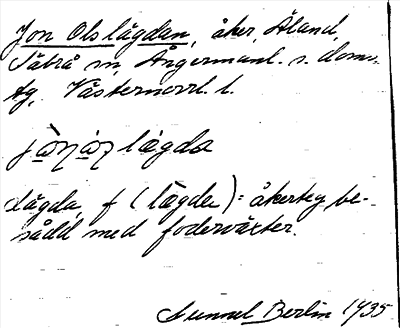 Jon Olslägdan, åker, Åland,
Säbrå sn, Ångermanl. s. doms.
tg, Västernorrl. l.
lägda
lägda, f (lägda) = åkerteg be-
sådd med foderväxter.
Gunnel Berlin 1935